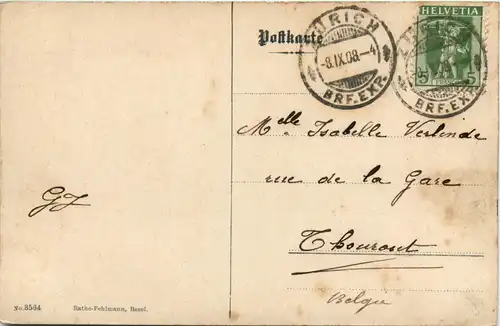 Postkarte
ZÜRICH
-8.IX.08.-4
BRF.EXP.
HELVETIA
5 5
BRF.EXP.
Melle Isabelle Verlinde
rue de la Gare
Thourout
Belgie
GJ
No. 8564 Rathe-Fehlmann, Basel.